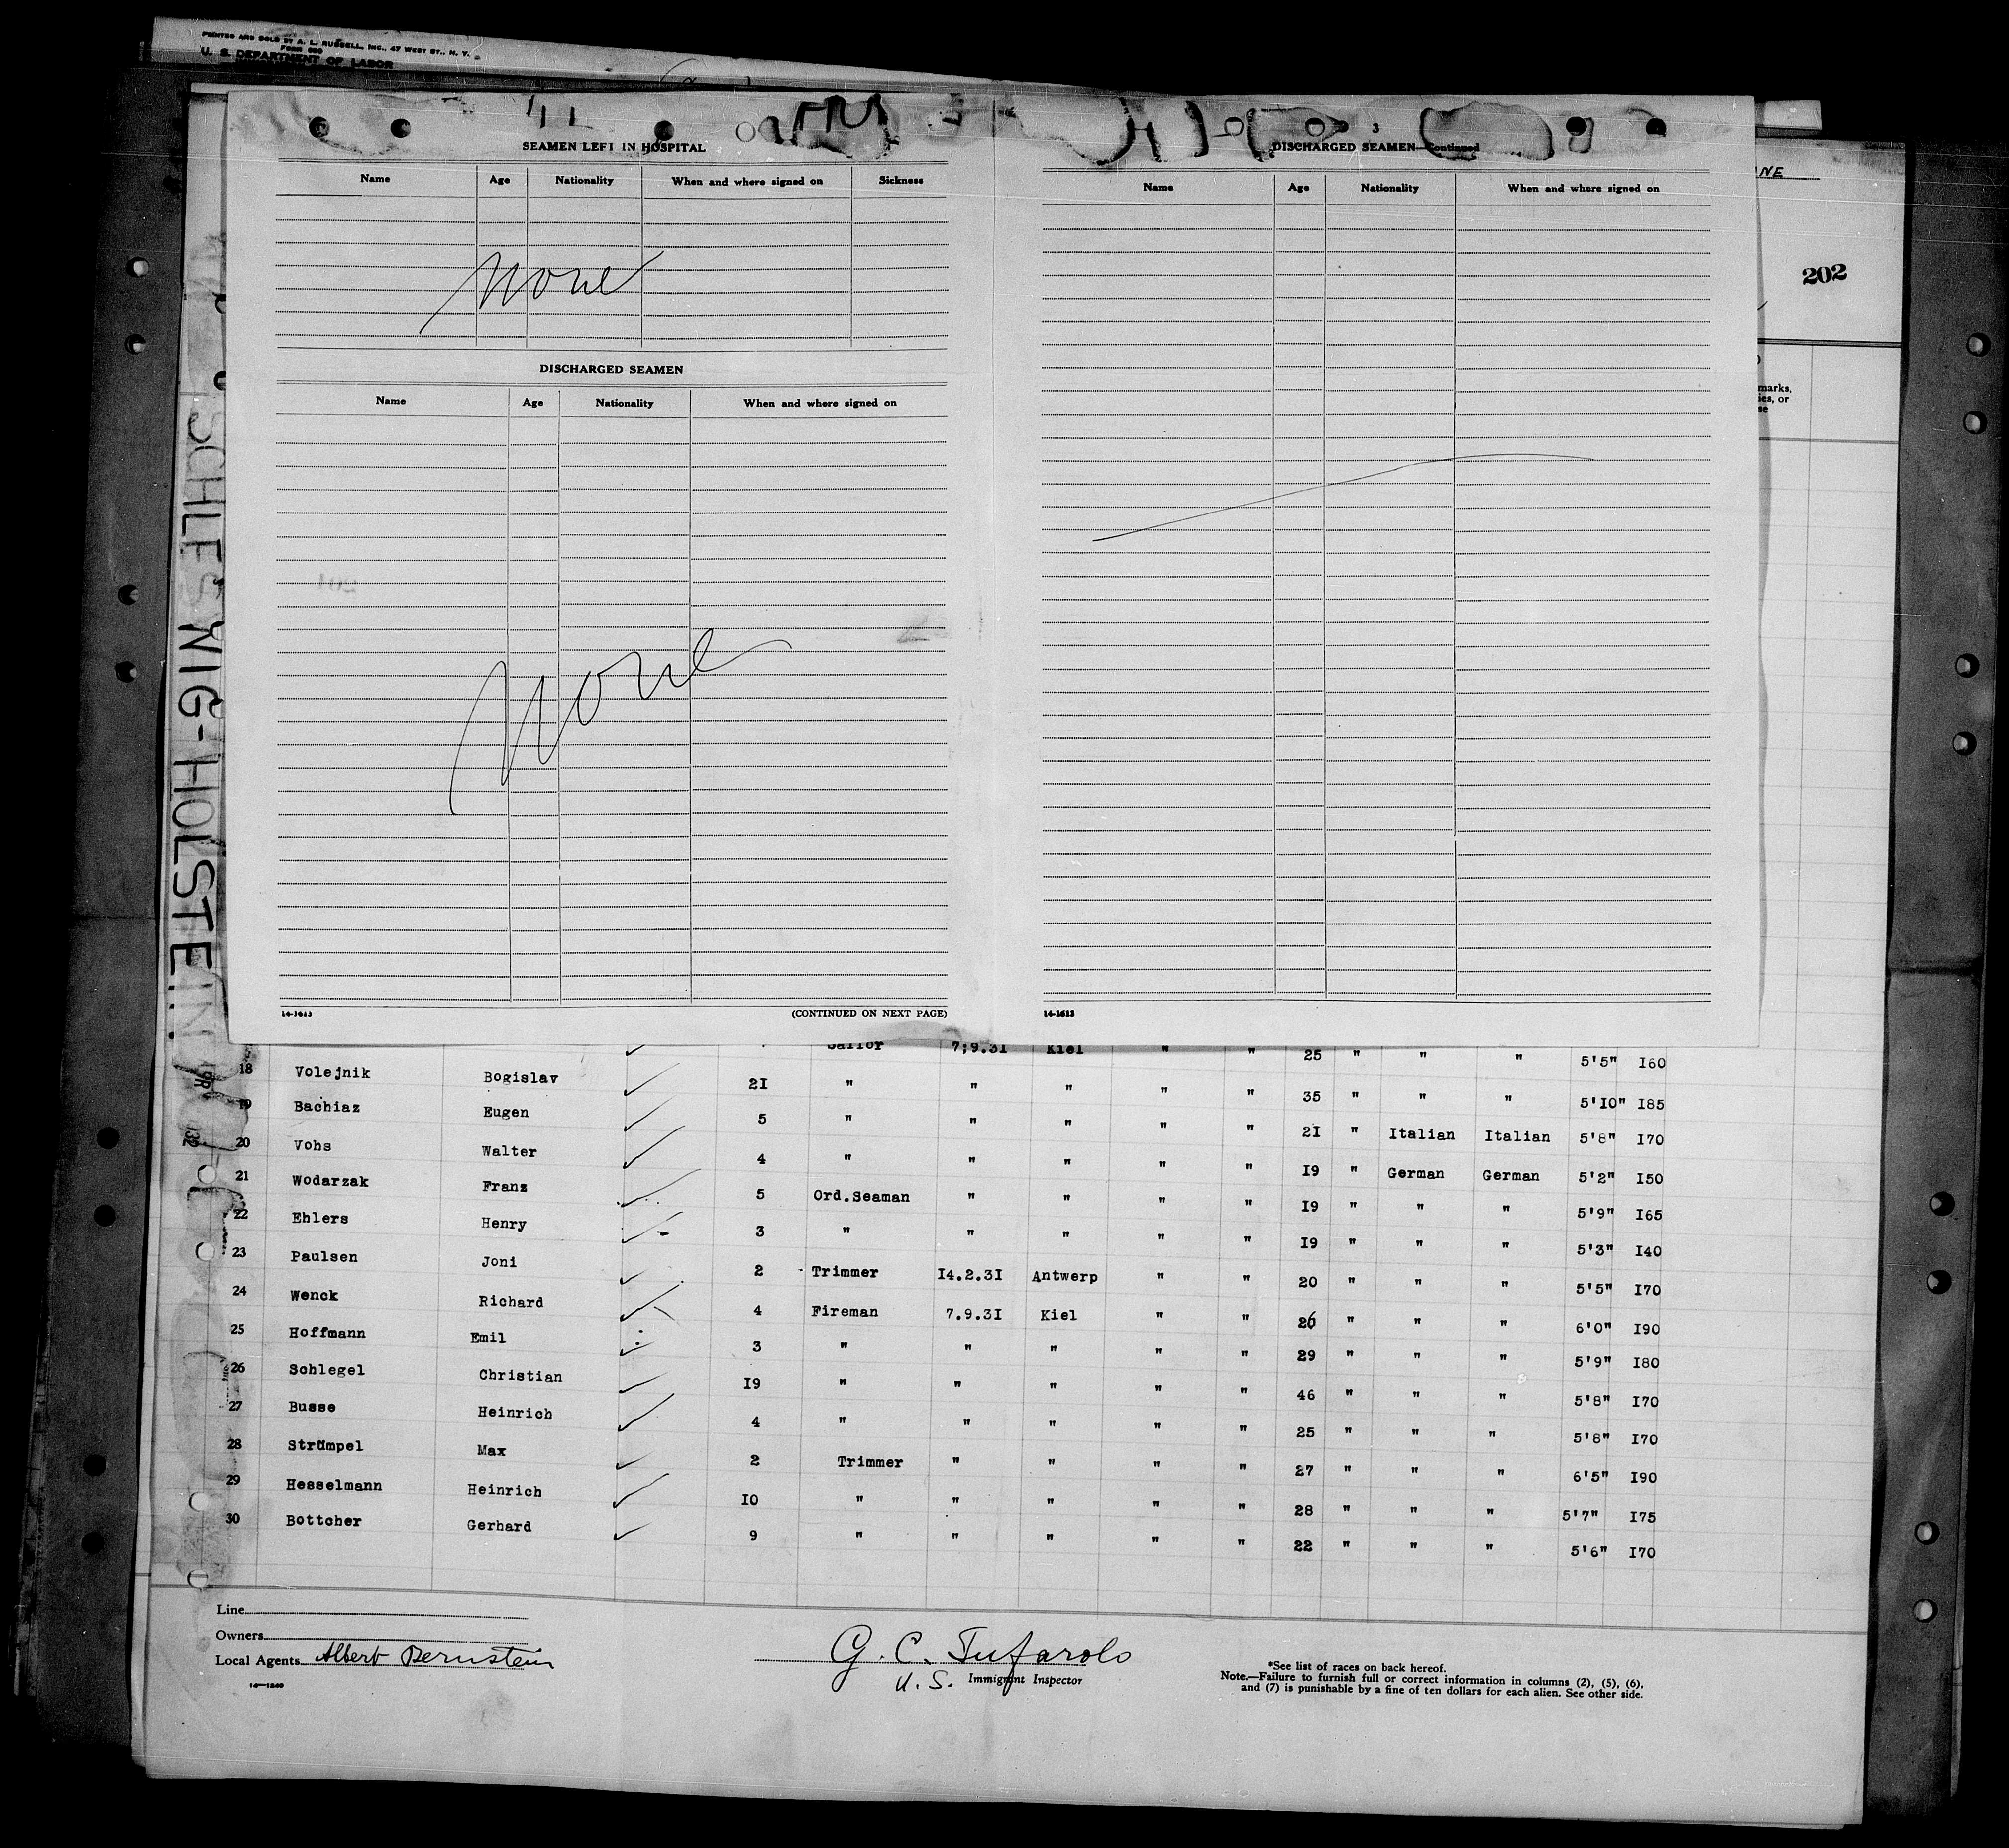 PRINTED AND SOLD BY A. L. RUSSELL, INC., 47 WEST ST., N. Y.
FORM 680
U. S. DEPARTMENT OF LABOR
NE
202
marks,
ies, or
se
SCHLESWIG-HOLSTEIN
SEAMEN LEFT IN HOSPITAL
Name Age Nationality When and where signed on Sickness
None
DISCHARGED SEAMEN
Name Age Nationality When and where signed on
None
14-1613 (CONTINUED ON NEXT PAGE)
3
DISCHARGED SEAMEN—Continued
Name Age Nationality When and where signed on
14-1613
Sailor 7;9.3I Kiel " " 25 " " " 5'5" I60
18 Volejnik Bogislav 2I " " " " " 35 " " " 5'I0" I85
19 Bachiaz Eugen 5 " " " " " 2I " Italian Italian 5'8" I70
20 Vohs Walter 4 " " " " " I9 " German German 5'2" I50
21 Wodarzak Franz 5 Ord.Seaman " " " " I9 " " " 5'9" I65
22 Ehlers Henry 3 " " " " " I9 " " " 5'3" I40
23 Paulsen Joni 2 Trimmer I4.2.3I Antwerp " " 20 " " " 5'5" I70
24 Wenck Richard 4 Fireman 7.9.3I Kiel " " 26 " " " 6'0" I90
25 Hoffmann Emil 3 " " " " " 29 " " " 5'9" I80
26 Schlegel Christian I9 " " " " " 46 " " " 5'8" I70
27 Busse Heinrich 4 " " " " " 25 " " " 5'8" I70
28 Strümpel Max 2 Trimmer " " " " 27 " " " 6'5" I90
29 Hesselmann Heinrich I0 " " " " " 28 " " " 5'7" I75
30 Bottcher Gerhard 9 " " " " " 22 " " " 5'6" I70
Line
Owners
Local Agents Albert Bernstein
G. C. Tufarolo
U.S. Immigrant Inspector
*See list of races on back hereof.
Note.—Failure to furnish full or correct information in columns (2), (5), (6),
and (7) is punishable by a fine of ten dollars for each alien. See other side.